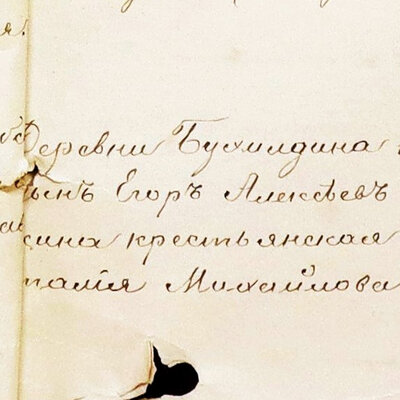 я.
Деревни Бухилдина
сынъ Егоръ Алексѣевъ
сина крестьянская
талія Михайлова